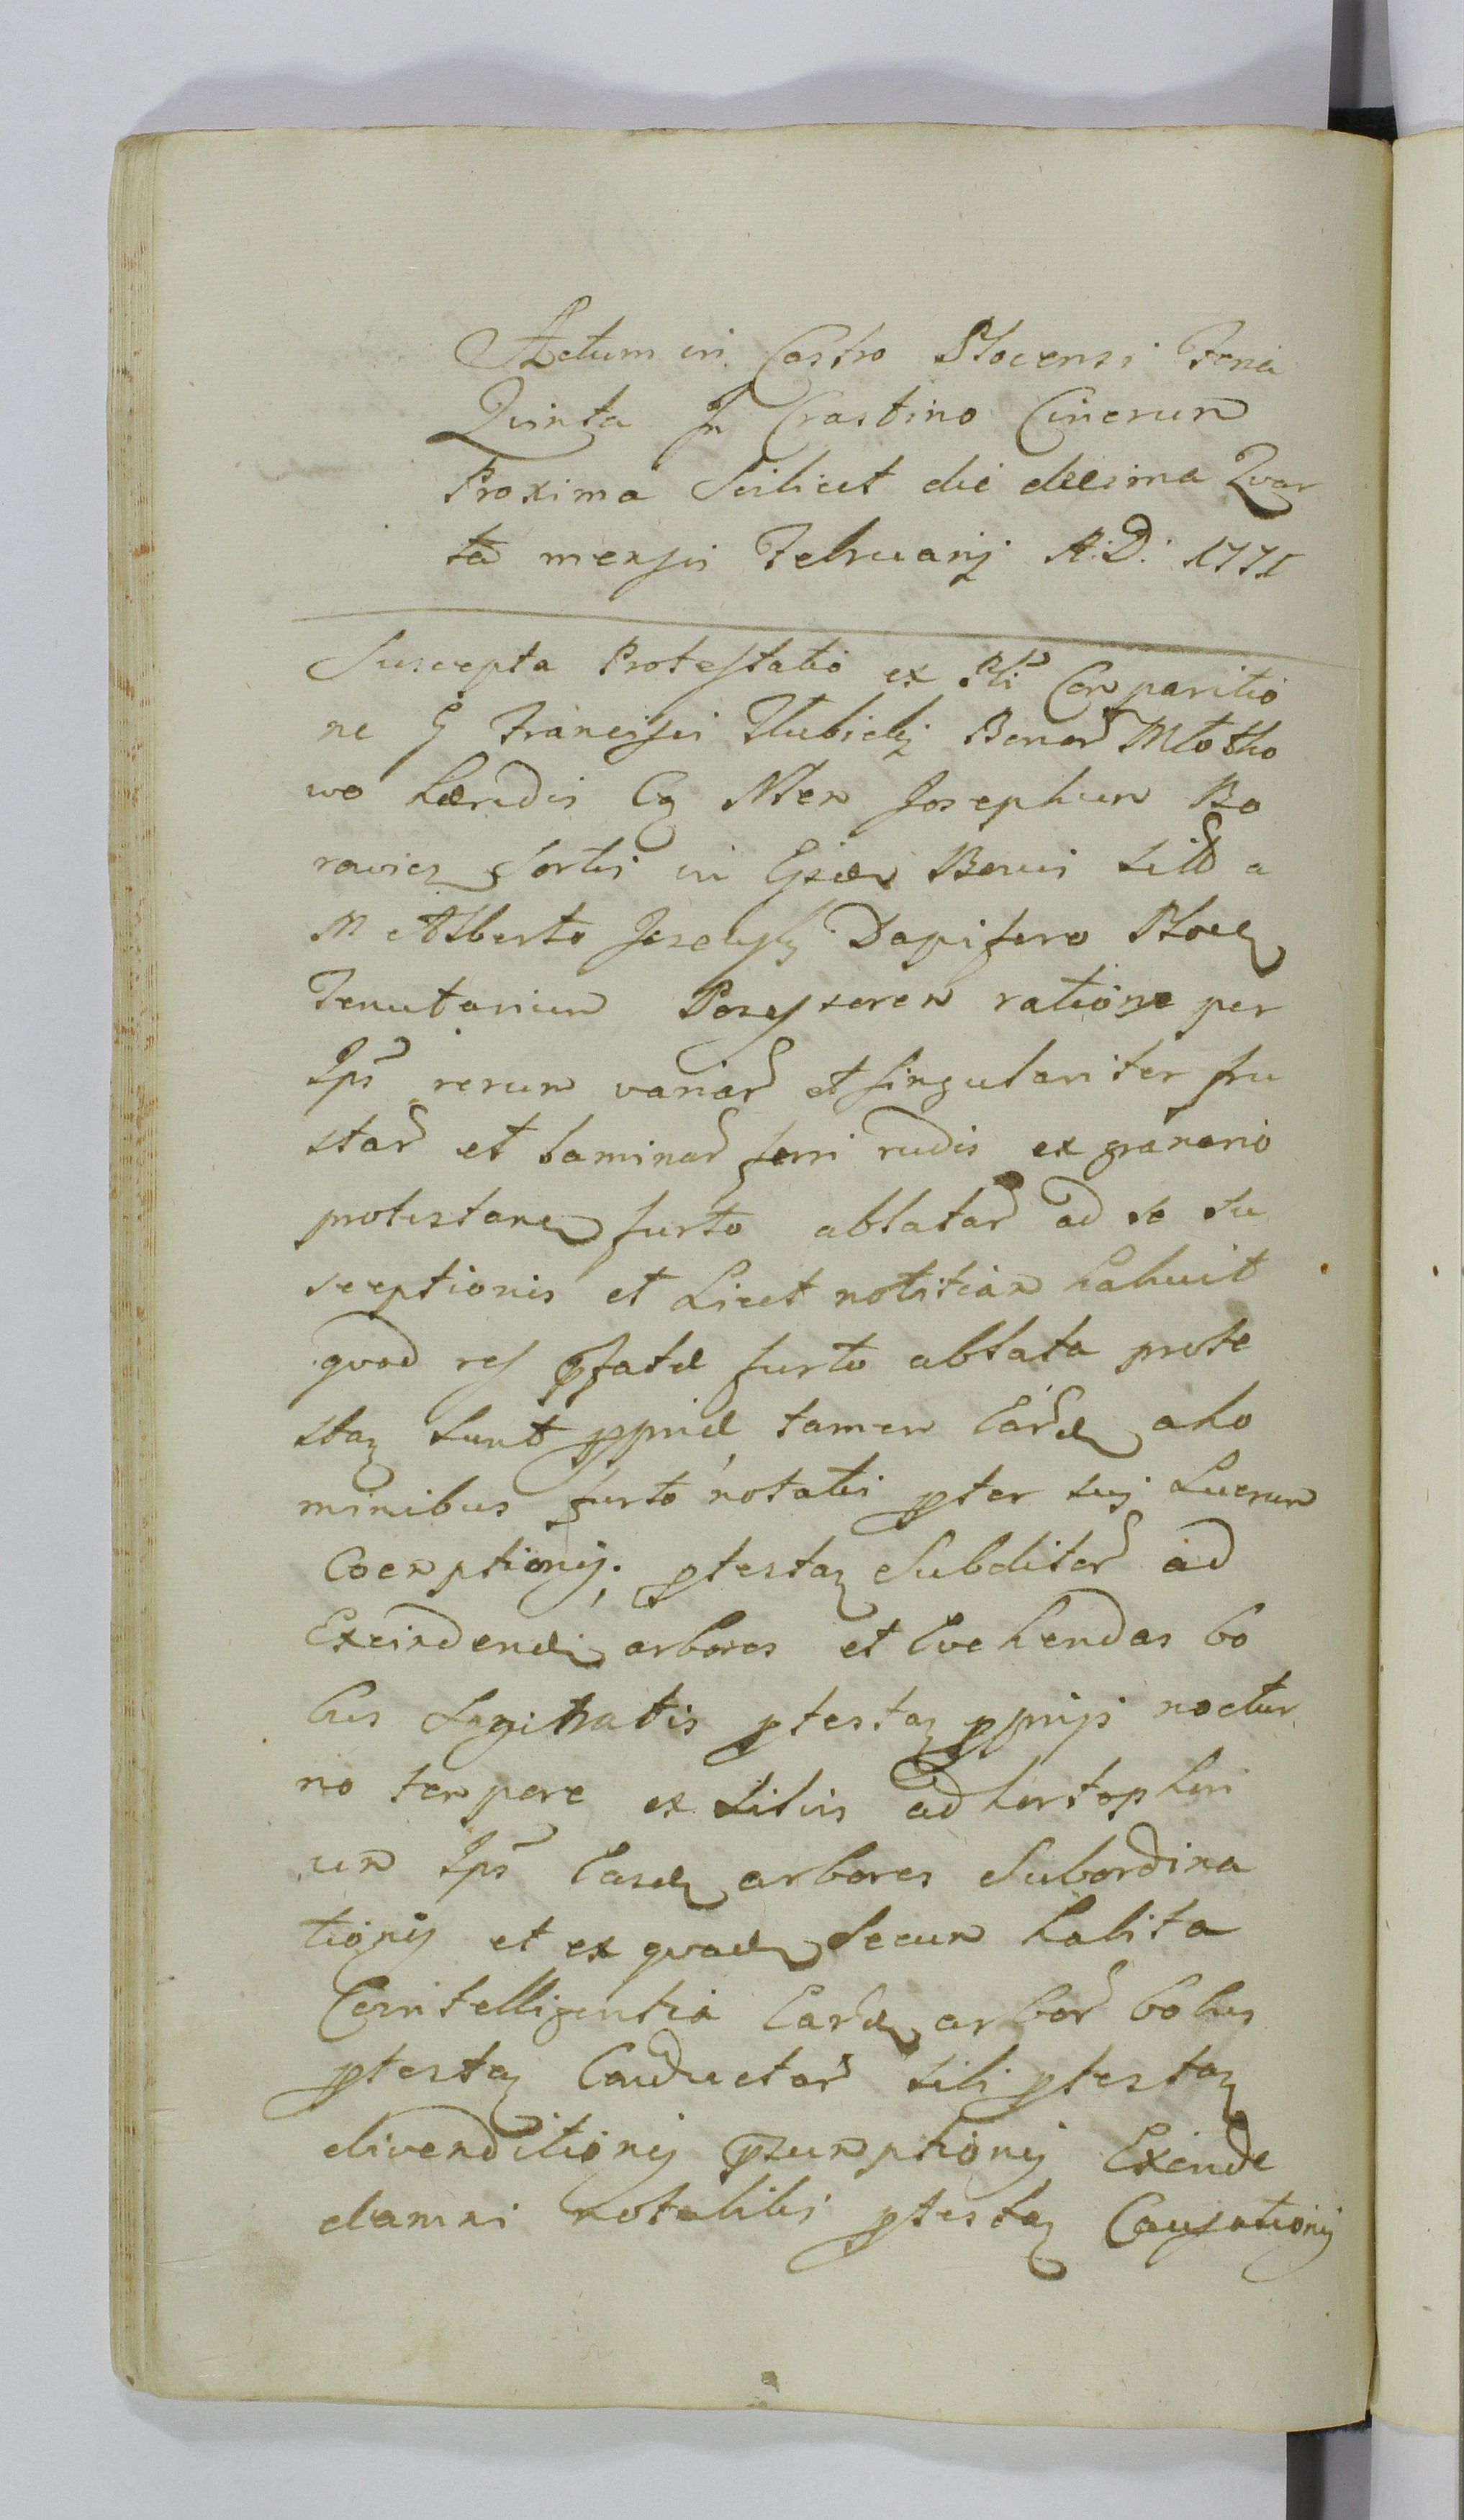 Actum in Castro Plocensi Feria
Quinta In Crastino Cinerum
Proxima Scilicet die decima Quar
ta mensis Februarij A: D: 1771
Suscepta Protestatio ex Pti Comparitio
ne G Francisci Dłubicki Bonor Młotko
wo hæredis Cą Nlem Josephum Bo
rowicz Sortis in Ejsdem Bonis sitæ a
M Alberto Jezewski Dapifero Plocen
Tenutarium Possessorem ratione per
Ips rerum variar et singulariter fru
star et laminar ferri rudis ex granario
protestanen furto ablatar ad se su
sceptionis et Licet notitiam habuit
quod res pfatæ furto ablata prote
stan sunt ppriæ, tamen Earde aho
minibus furto notatis pter suj Lucrum
Coemptionis; ptestan Subditor ad
Exscindendi arbores et Evehendas bo
bus Sagittatis ptestan pprijs noctur
no tempore ex silvis ad hortop
um Ips Easd arbores Subordina
tionis et ex quad secum habita
Cointelligentia Eard arbor bobus
ptestan Conductar sibi ptestan
divenditionis psumptionis Exinde
damni notabilis ptestan Causationis